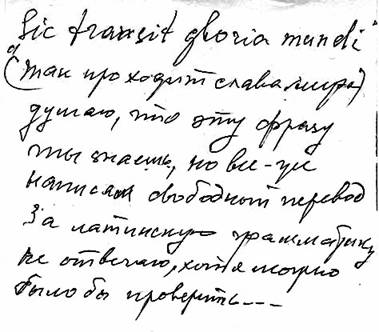 Sic transit gloria mundi"
"(так проходит слава мира)
думаю, что эту фразу
ты знаешь, но все-же
написал свободный перевод
За латинскую грамматику
не отвечаю, хотя можно
было бы проверить---